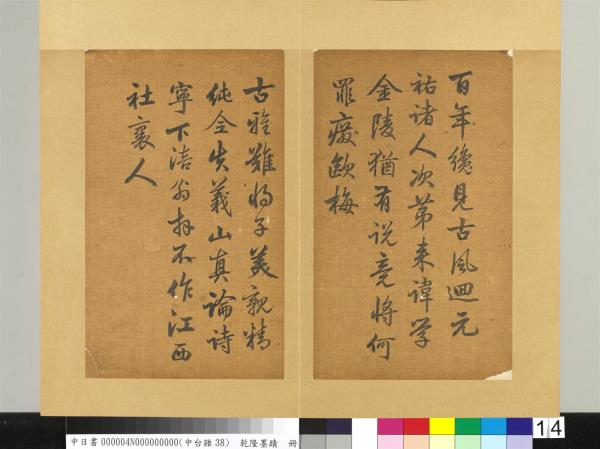 百年纔見古風迴元
祐諸人次第來諱学
金陵猶有説竟将何
罪廢歐梅
古雅難将子美親精
純全失義山真論詩
寧下涪翁拜不作江西
社裏人
中日書 000004N000000000(中台雜 38) 乾隆墨蹟 冊
14